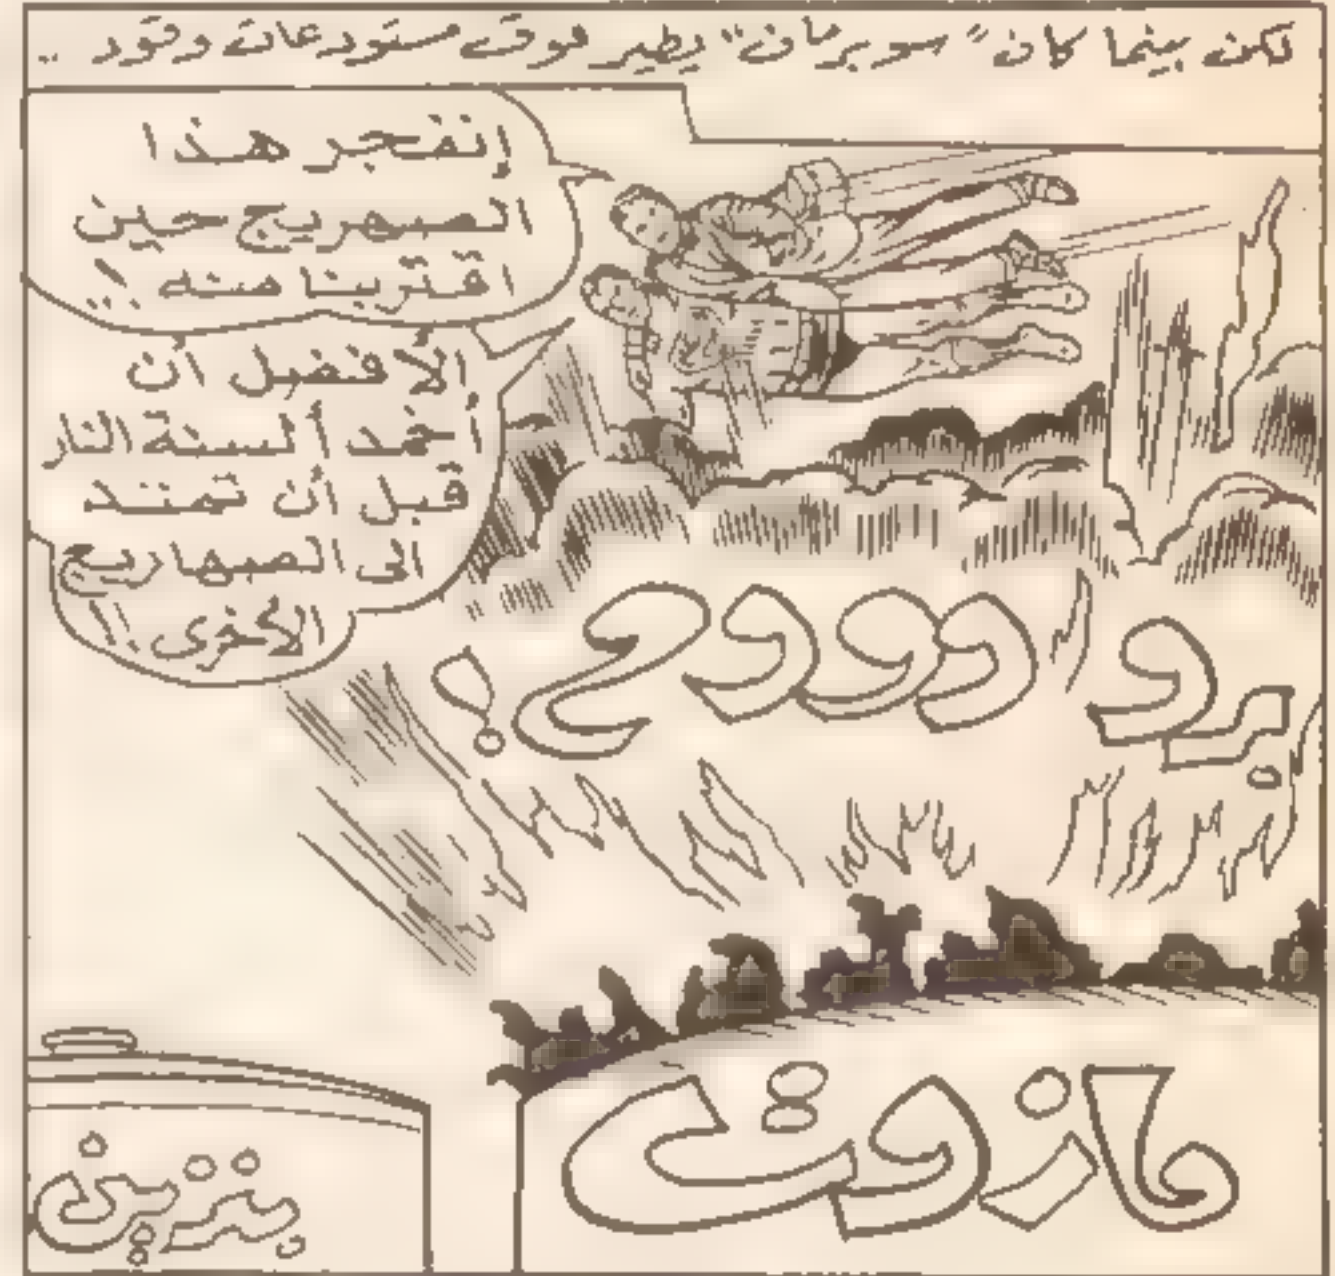 لكن بينما كان "سوبرمان" يطير فوق مستودعات وقود ..
إنفجر هذا
الصهريج حين
اقتربنا منه !!
الأفضل أن
أخمد ألسنة النار
قبل أن تمتد
الى الصهاريج
الأخرى !!
برووووم!
مازوت
بنزين